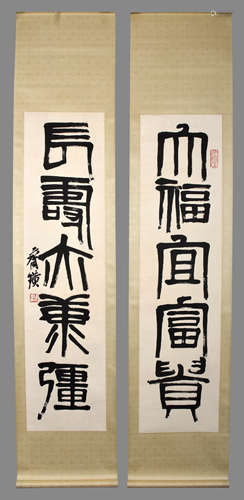 大福宜富貴
長壽亦康彊
齊璜